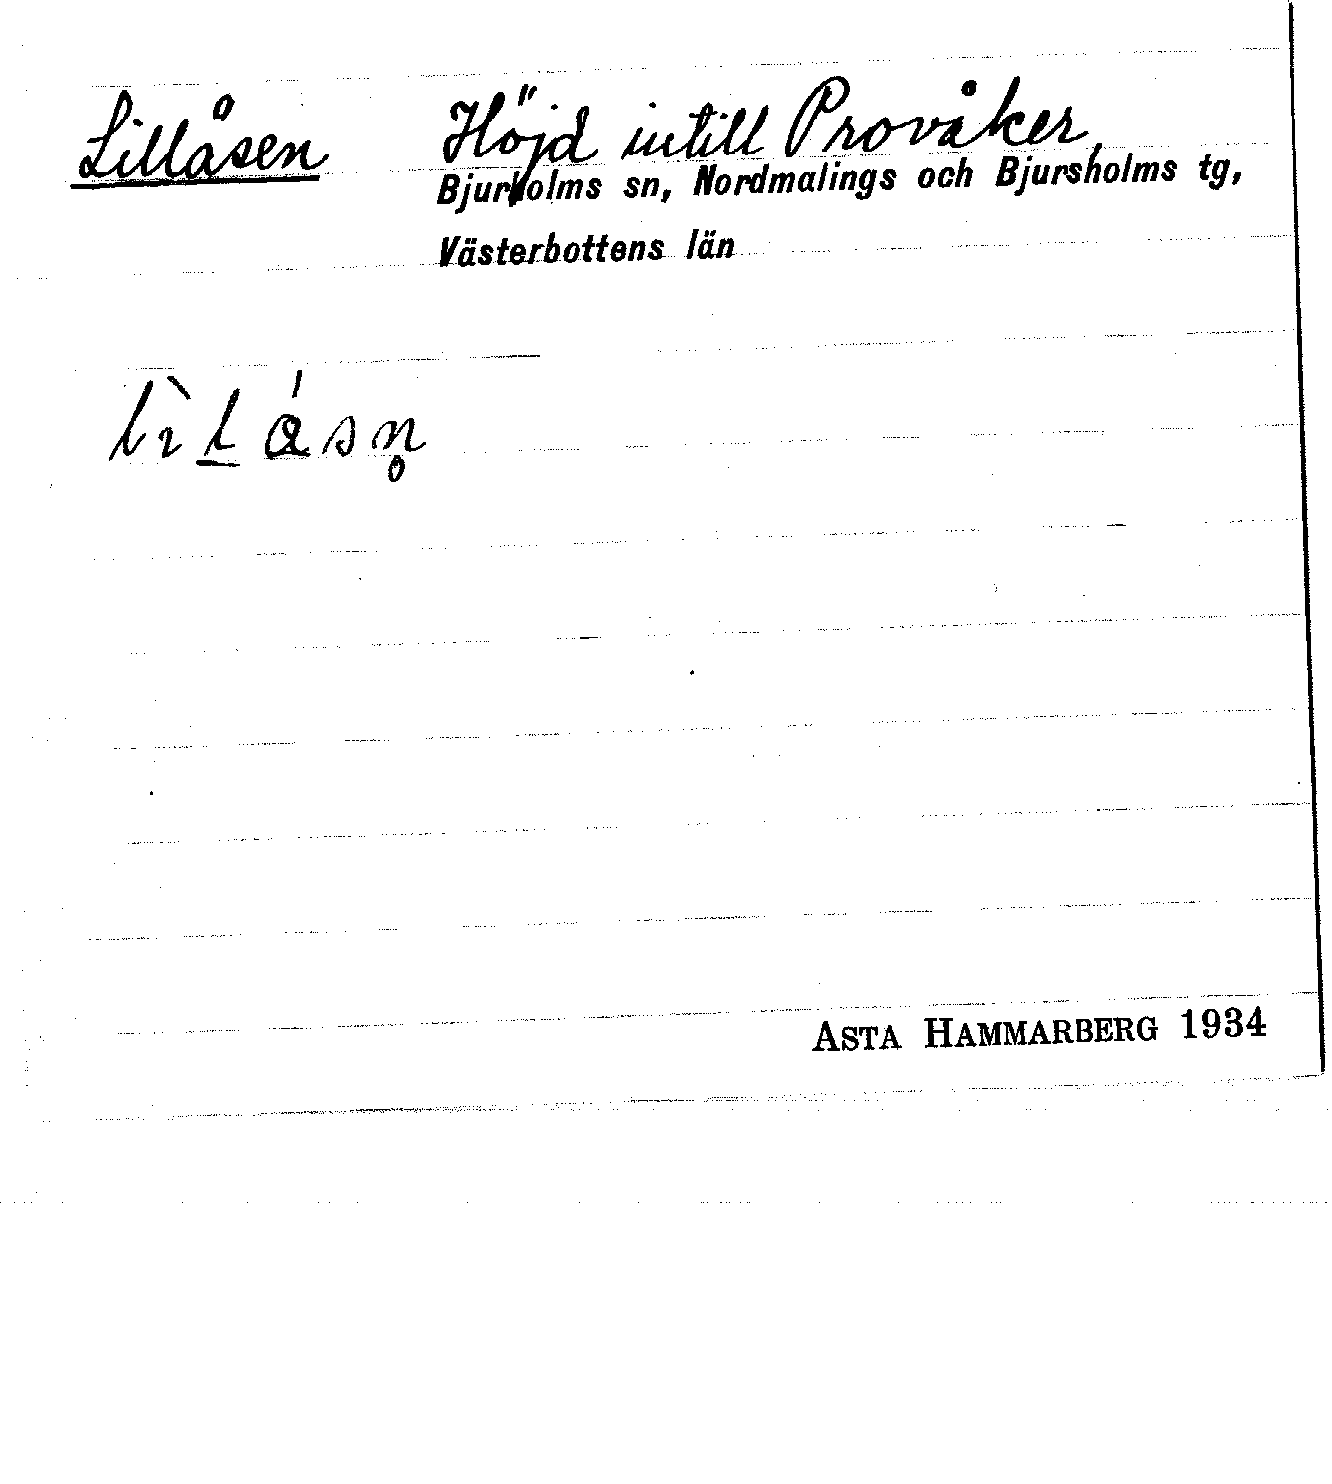 Lillåsen Höjd intill Provåker,
Bjurholms sn, Nordmalings och Bjursholms tg,
Västerbottens län
ASTA HAMMARBERG 1934